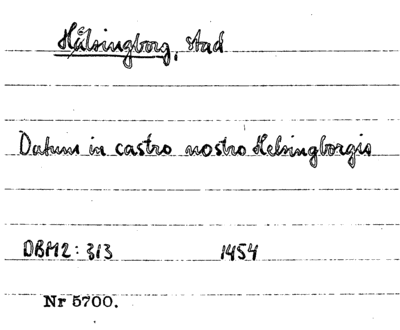 Hälsingborg, stad
Datum in castro nostro Helsingborgis
DBM2: 313 1454
Nr 5700.